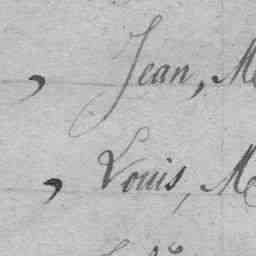 , Jean, M
, Louis, M